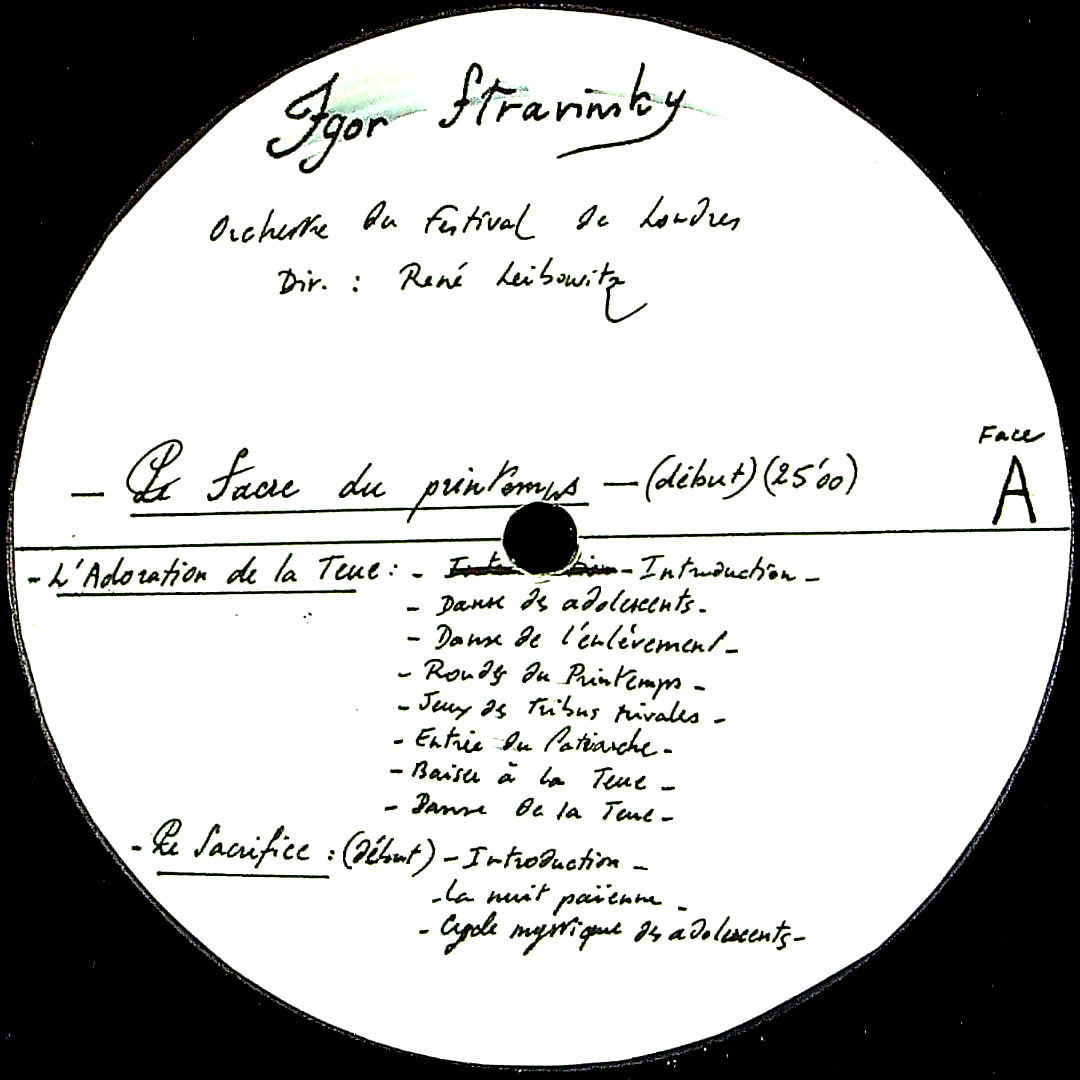 Igor Stravinsky
Orchestre du Festival de Londres
Dir. : René Leibowitz
Face
A
— Le Sacre du printemps — (début) (25'00)
- L'Adoration de la Terre : - - Introduction -
- Danse des adolescents -
- Danse de l'enlèvement -
- Rondes du Printemps -
- Jeux des tribus rivales -
- Entrée du Patriarche -
- Baiser à la Terre -
- Danse de la Terre -
- Le Sacrifice : (début) - Introduction -
- La nuit païenne -
- Cycle mystique des adolescents -